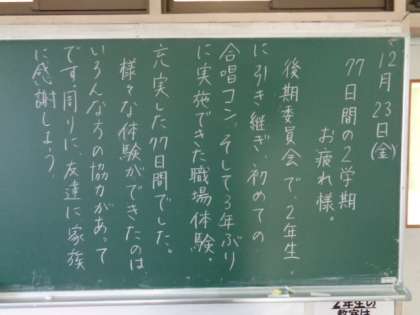 12月23日(金)
77日間の2学期
お疲れ様。
後期委員会で、2年生
に引き継ぎ、初めての
合唱コン、そして3年ぶり
に実施できた職場体験。
充実した77日間でした。
様々な体験ができたのは
いろんな方の協力があって
です。周りに、友達に家族
に感謝しよう。
2年生の
教室は